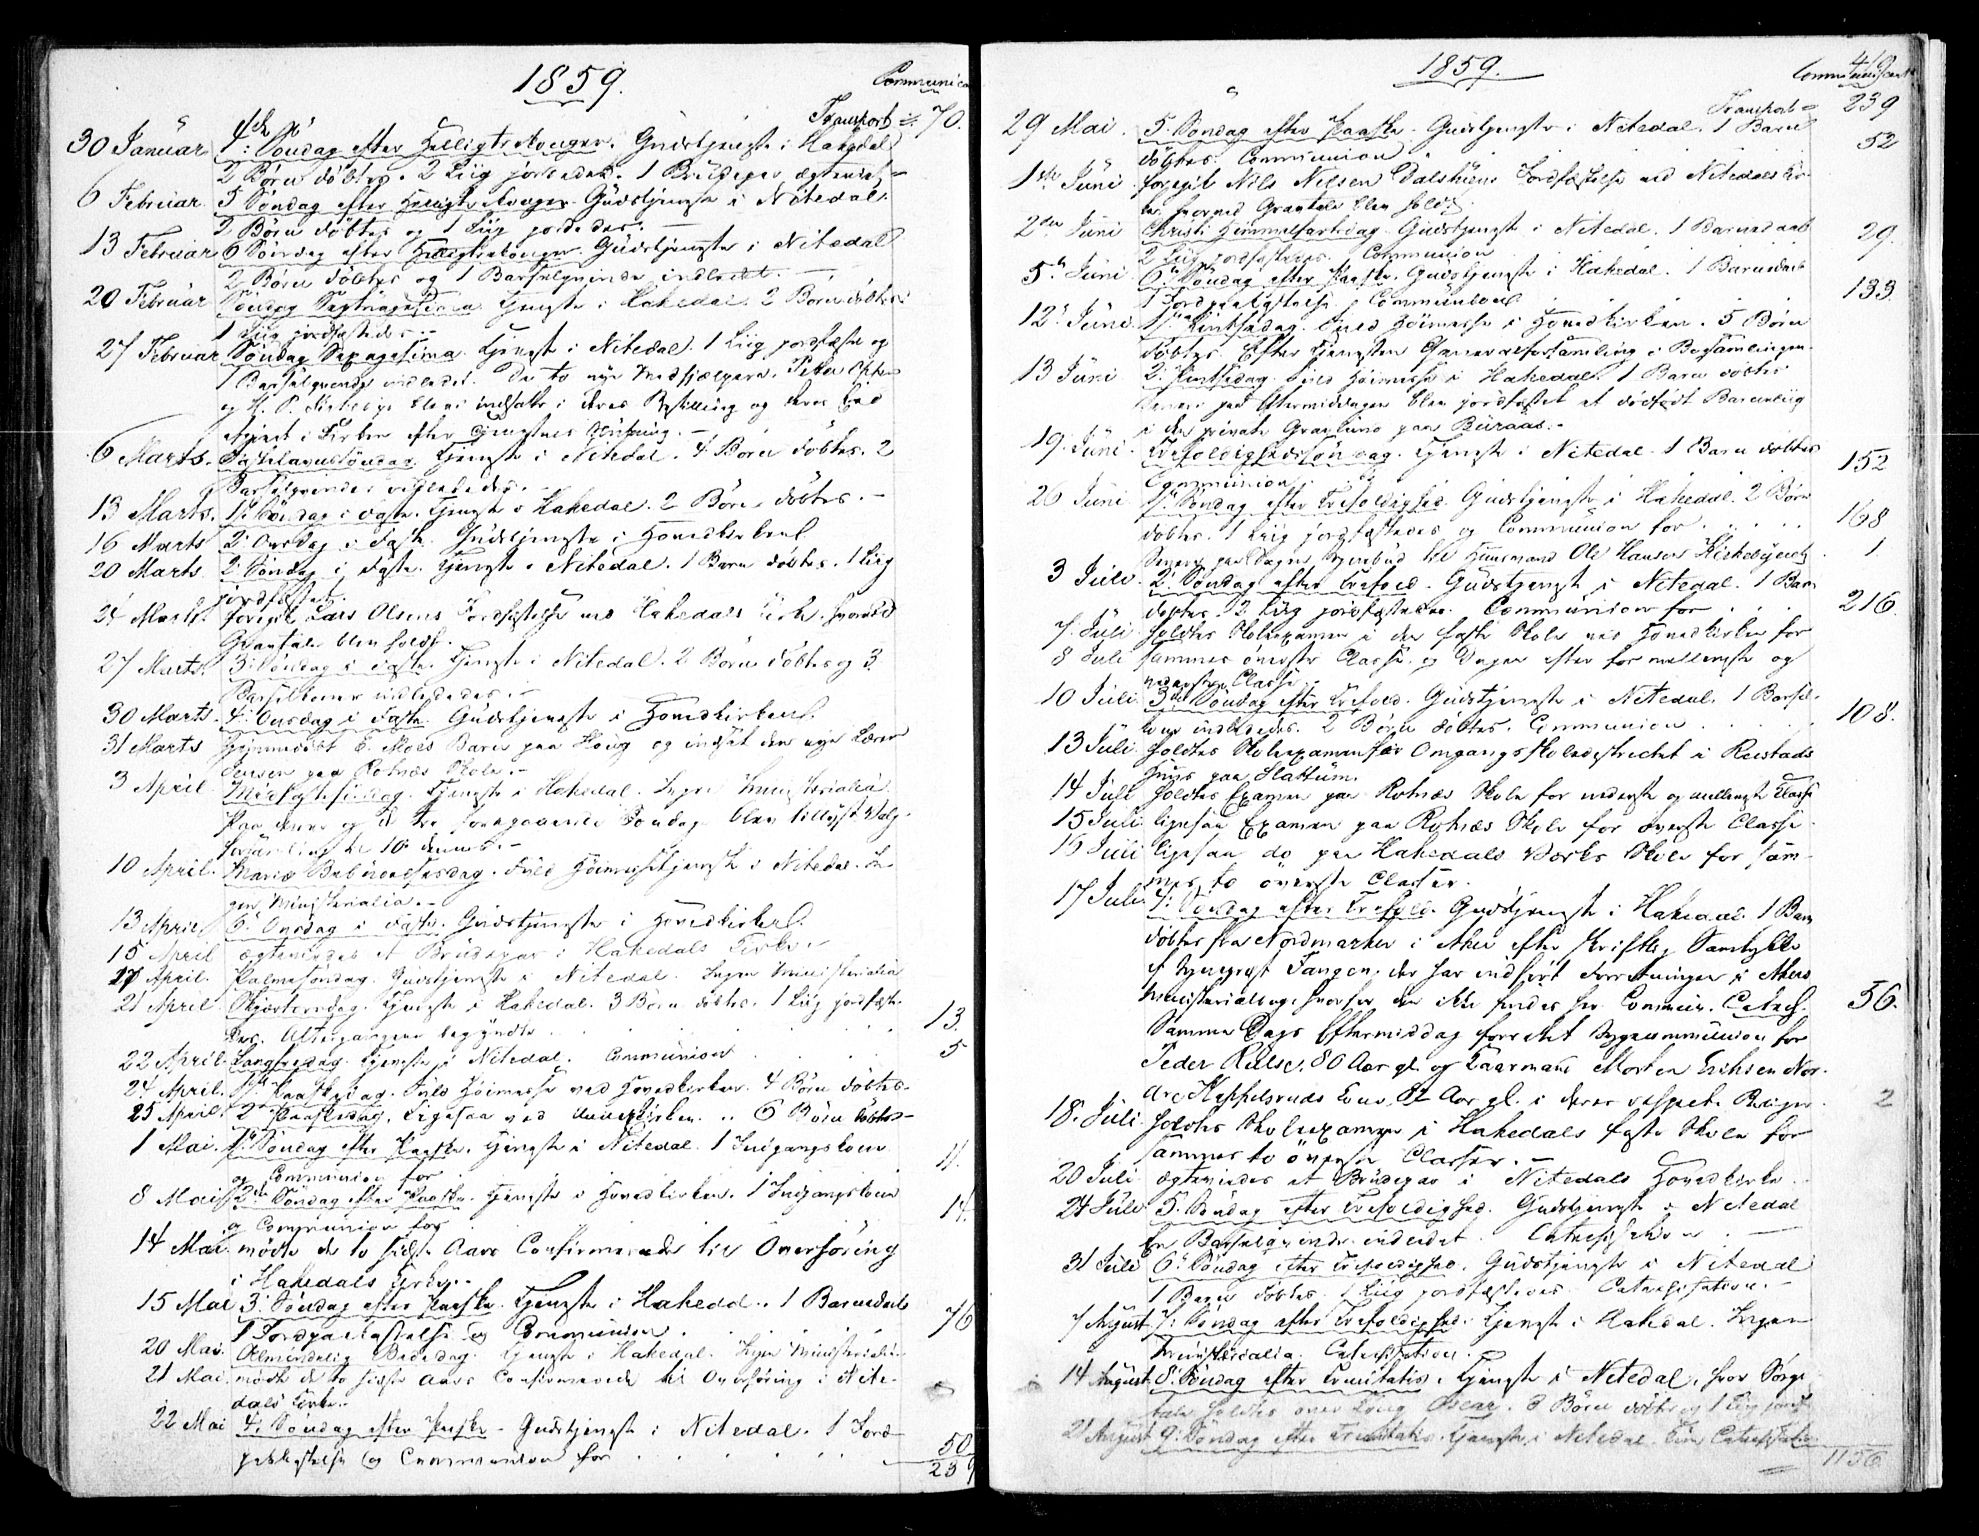 1859.
Communica
Transport = 70.
30 Januar 4de Søndag efter Helligtrekonger. Gudstjeneste i Hakedal
2 Børn døbtes. 2 Liig jordedes. 1 Brudepar ægteviet
6 Februar 5 Søndag efter Helligtrekonger Gudstjeneste i Nitedal.
2 Børn døbtes og 1 Liig jordedes.
13 Februar 6 Søndag efter Helligtrekonger Gudstjeneste i Nitedal
2 Børn døbtes og 1 Barselqvinde indledet.
20 Februar Søndag Septuagesima Tjeneste i Hakedal 2 Børn døbtes
1 Liig jordfæstedes.
27 Februar Søndag Sexagesima Tjeneste i Nitedal. 1 Liig jordfæstet og
1 Barselqvinde indledet. De to nye Medhjælpere, Peder
og H. P. bleve indsatte i deres Bestilling og deres Eed
i Kirken efter Tjenestens
6 Marts. Fastelavnssøndag Tjeneste i Nitedal. 4 Børn døbtes. 2
Barselqvinder indlededes.
13 Marts. 1 Søndag i Faste. Tjeneste i Hakedal. 2 Børn døbtes.
16 Marts 2 Onsdag i Faste Gudstjeneste i Hovedkirken
20 Marts 2 Søndag i Faste. Tjeneste i Nitedal. 1 Barn døbtes. 1 Liig
jordfæstet.
Marts foregik Lars Olsens Jordfæstelse ved Hakedals Kirke. hvorved
Gravtale blev holdt.
27 Marts. 3 Søndag i Faste Tjeneste i Nitedal. 2 Børn døbtes og 3
Barselkoner indlededes.
30 Marts 4 Onsdag i Faste Gudstjeneste i Hovedkirken.
31 Marts Hjemmedøbt E. Moes Barn paa Houg og indsat den nye Lærer
Jensen paa Rotnæs Skole.
3 April Midfastesøndag. Tjeneste i Hakedal. Ingen Ministerialia
Paa denne og de tre foregaaende Søndage blev tillyst Valg-
forsamling til 10 dennes.
10 April. Mariæ Bebudelsesdag. Fuld Høimessetjeneste i Nitedal. In-
gen Ministerialia.
13 April 6 Onsdag i Faste. Gudstjeneste i Hovedkirken.
15 April ægteviedes et Brudepar i Hakedals Kirke.
17 April. Palmesøndag. Gudstjeneste i Nitedal. Ingen Ministerialia
21 April Skjærtorsdag. Tjeneste i Hakedal. 3 Børn døbtes. 1 Liig jordfæste-
des. Altergangen begyndte . . . 13.
22 April. Langfredag. Tjeneste i Nitedal. Communion . . . 5
24 April. 1ste Paaskedag. Fuld Høimesse ved Hovedkirken. 4 Børn døbtes.
25 April. 2 Paaskedag. Ligesaa ved Hovedkirken. 6 Børn døbtes
1 Mai. 1 Søndag efter Paaske. Tjeneste i Nitedal. 1 Indgangskone
og Communion for 11.
8 Mai 2den Søndag efter Paaske. Tjeneste i Hovedkirken. 1 Indgangskone
og Communion for 14.
14 Mai. mødte de to sidste Aars Confirmerede til Overhøring
i Hakedals Kirke.
15 Mai 3 Søndag efter Paaske. Tjeneste i Hakedal. 1 Barnedaab
1 Jordpaakastelse og Communion 76
20 Mai. Almindelig Bededag. Tjeneste i Hakedal. Ingen Ministerialia
21 Mai mødte de to sidste Aars Confirmerede til Overhøring i Nite-
dals Kirke.
22 Mai 4. Søndag efter Paaske. Gudstjeneste i Nitedal. 1 Jord-
paakastelse og Communion for 50
239
1859.
Communicant
Transport = 239
29 Mai. 5. Søndag efter Paaske. Gudstjeneste i Nitedal. 1 Barn 52
døbtes. Communion
1ste Juni foregik Nils Nilsen Dalshuens Jordfæstelse ved Nitedals Kir-
ke, hvorved Gravtale blev holdt.
2den Juni Christi Himmelfartsdag Gudstjeneste i Nitedal. 1 Barnedaab 29.
2 Liig jordfæstedes. Communion
5 Juni 6 Søndag efter Paaske. Gudstjeneste i Hakedal. 1 Barnedaab
1 Jordpaakastelse. Communion 133
12 Juni 1. Pintsedag. Fuld Høimesse i Hovedkirken. 5 Børn
døbtes. Efter Tjenesten Generalforsamling i Bogsamlingen.
13 Juni 2. Pintsedag. Fuld Høimesse i Hakedal. 1 Barn døbtes
Senere paa Eftermiddagen blev jordfæstet et dødfødt Barneliig
i den private Gravlund paa Buraas.
19. Juni Trefoldighedssøndag. Tjeneste i Nitedal. 1 Barn døbtes 152
Communion
26 Juni 1. Søndag efter Trefoldighed. Gudstjeneste i Hakedal. 2 Børn
døbtes. 1 Liig jordfæstedes og Communion for 168
Senere paa Dagen Sygebud til Huusmand Ole Hansen Kirkebyeie. 1
3 Juli. 2. Søndag efter Trefold. Gudstjeneste i Nitedal. 1 Barn
døbtes. 2 Liig jordfæstedes. Communion for 216.
7. Juli holdtes Skoleexamen i den faste Skole ved Hovedkirken for
8 Juli sammes øverste Classe og Dagen efter for mellemste og
nederste Classe.
10 Juli 3de Søndag efter Trefold. Gudstjeneste i Nitedal. 1 Barsel-
kone indlededes. 2 Børn døbtes. Communion 108.
13 Juli holdtes Skoleexamen for Omgangsskoledistrictet i Rustads
Huus paa Slattum.
14 Juli holdtes Examen paa Rotnæs Skole for nederste og mellemste Classe
15 Juli ligesaa Examen paa Rotnæs Skole for øverste Classe
16 Juli ligesaa do paa Hakedals Værks Skole for sam-
mes to øverste Classer.
17 Juli 4: Søndag efter Trefold. Gudstjeneste i Hakedal 1 Barn
døbtes fra Nordmarken i Aker efter skriftlig Samtykke
af Sognepræst Tangen, der har indført Forretningen i Akers
Ministerialbog, hvorfor den ikke findes her. Commun. Catech. 56.
Samme Dags Eftermiddag forrettet Sygecommunion for
Peder Rulse, 80 Aar gl. og Gaarmand Morten Erichsen Nor-
dre Kone, 82 Aar gl. i deres respect. Boliger. 2
18. Juli holdtes Skoleexamen i Hakedals faste Skole for
sammes to øverste Classer.
20 Juli ægteviedes et Brudepar i Nitedals Hovedkirke.
24 Juli 5. Søndag efter Trefoldighed. Gudstjeneste i Nitedal
En Barselqvinde indledet. Catechisation.
31 Juli 6 Søndag efter Trefoldighed. Gudstjeneste i Nitedal
1 Barn døbtes. 1 Liig jordfæstedes. Catechisation.
7 August 7: Søndag efter Trefoldighed. Tjeneste i Hakedal. Ingen
Ministerialia. Catechisation.
14 August 8. Søndag efter Trinitatis. Tjeneste i Nitedal, hvor Sørge-
tale holdtes over Kong Oscar. 3 Børn døbtes og 1 Liig jordf.
21 August 9. Søndag efter Trinitatis. Tjeneste i Nitedal. Catechisation
1156